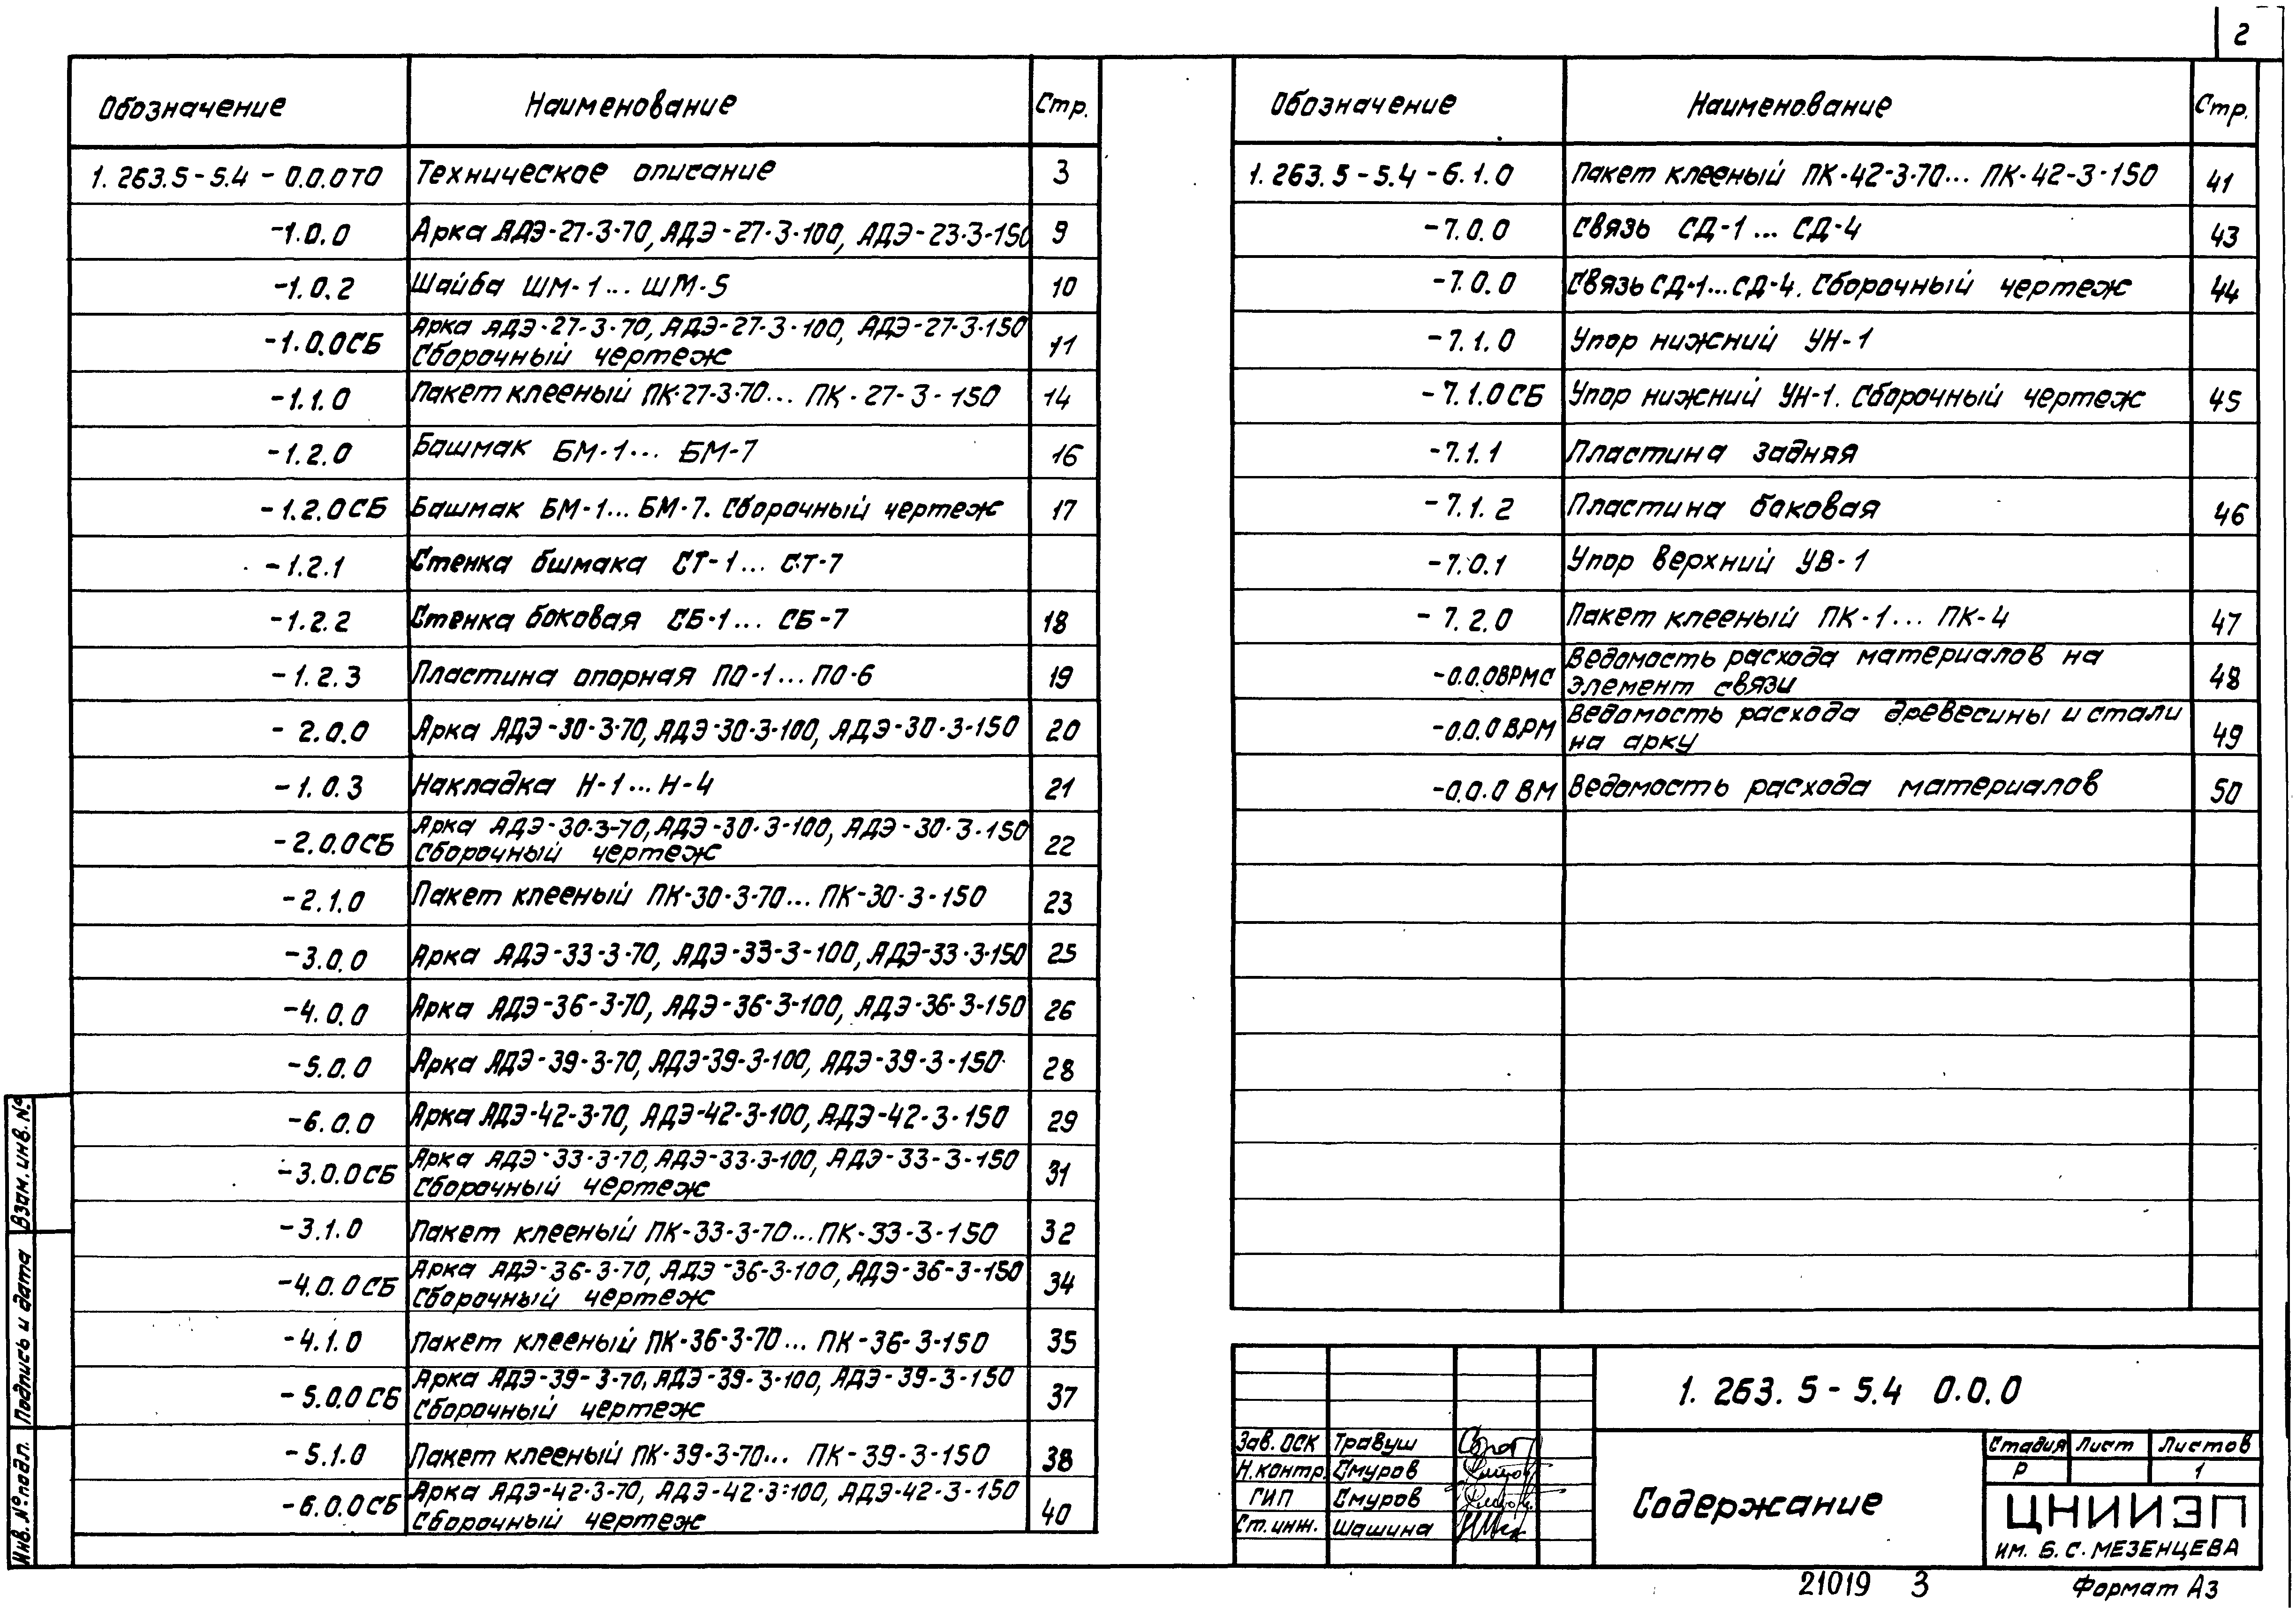 2
Обозначение Наименование Стр.
1.263.5-5.4-0.0.0ТО Техническое описание 3
-1.0.0 Арка АДЭ-27-3-70, АДЭ-27-3-100, АДЭ-23-3-150 9
-1.0.2 Шайба ШМ-1...ШМ-5 10
-1.0.0СБ Арка АДЭ-27-3-70, АДЭ-27-3-100, АДЭ-27-3-150
Сборочный чертеж 11
-1.1.0 Пакет клееный ПК-27-3-70...ПК-27-3-150 14
-1.2.0 Башмак БМ-1...БМ-7 16
-1.2.0СБ Башмак БМ-1...БМ-7. Сборочный чертеж 17
-1.2.1 Стенка бшмака СТ-1...СТ-7
-1.2.2 Стенка боковая СБ-1...СБ-7 18
-1.2.3 Пластина опорная ПО-1...ПО-6 19
-2.0.0 Арка АДЭ-30-3-70, АДЭ-30-3-100, АДЭ-30-3-150 20
-1.0.3 Накладка Н-1...Н-4 21
-2.0.0СБ Арка АДЭ-30-3-70, АДЭ-30-3-100, АДЭ-30-3-150
Сборочный чертеж 22
-2.1.0 Пакет клееный ПК-30-3-70...ПК-30-3-150 23
-3.0.0 Арка АДЭ-33-3-70, АДЭ-33-3-100, АДЭ-33-3-150 25
-4.0.0 Арка АДЭ-36-3-70, АДЭ-36-3-100, АДЭ-36-3-150 26
-5.0.0 Арка АДЭ-39-3-70, АДЭ-39-3-100, АДЭ-39-3-150 28
-6.0.0 Арка АДЭ-42-3-70, АДЭ-42-3-100, АДЭ-42-3-150 29
-3.0.0СБ Арка АДЭ-33-3-70, АДЭ-33-3-100, АДЭ-33-3-150
Сборочный чертеж 31
-3.1.0 Пакет клееный ПК-33-3-70...ПК-33-3-150 32
-4.0.0СБ Арка АДЭ-36-3-70, АДЭ-36-3-100, АДЭ-36-3-150
Сборочный чертеж 34
-4.1.0 Пакет клееный ПК-36-3-70...ПК-36-3-150 35
-5.0.0СБ Арка АДЭ-39-3-70, АДЭ-39-3-100, АДЭ-39-3-150
Сборочный чертеж 37
-5.1.0 Пакет клееный ПК-39-3-70...ПК-39-3-150 38
-6.0.0СБ Арка АДЭ-42-3-70, АДЭ-42-3-100, АДЭ-42-3-150
Сборочный чертеж 40
Обозначение Наименование Стр.
1.263.5-5.4-6.1.0 Пакет клееный ПК-42-3-70...ПК-42-3-150 41
-7.0.0 Связь СД-1...СД-4 43
-7.0.0 Связь СД-1...СД-4. Сборочный чертеж 44
-7.1.0 Упор нижний УН-1
-7.1.0СБ Упор нижний УН-1. Сборочный чертеж 45
-7.1.1 Пластина задняя
-7.1.2 Пластина боковая 46
-7.0.1 Упор верхний УВ-1
-7.2.0 Пакет клееный ПК-1...ПК-4 47
-0.0.0ВРМС Ведомость расхода материалов на
элемент связи 48
-0.0.0ВРМ Ведомость расхода древесины и стали
на арку 49
-0.0.0ВМ Ведомость расхода материалов 50
Взам. инв. №
Подпись и дата
Инв. № подл.
1.263.5-5.4 0.0.0
Зав. ОСК Травуш
Н. контр. Смуров
ГИП Смуров
Ст. инж. Шашина
Содержание
Стадия Лист Листов
Р 1
ЦНИИЭП
им. Б.С. МЕЗЕНЦЕВА
21019 3
Формат А3